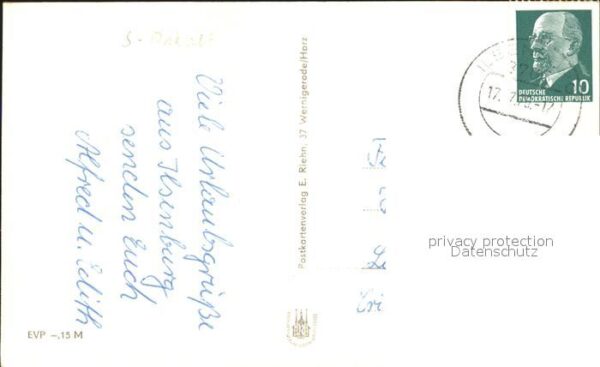 Viele Urlaubsgrüße
aus Ilsenburg
senden Euch
Alfred u. Edith
EVP –,15 M
Postkartenverlag E. Riehn, 37 Wernigerode/Harz
10
DEUTSCHE
DEMOKRATISCHE REPUBLIK
privacy protection
Datenschutz